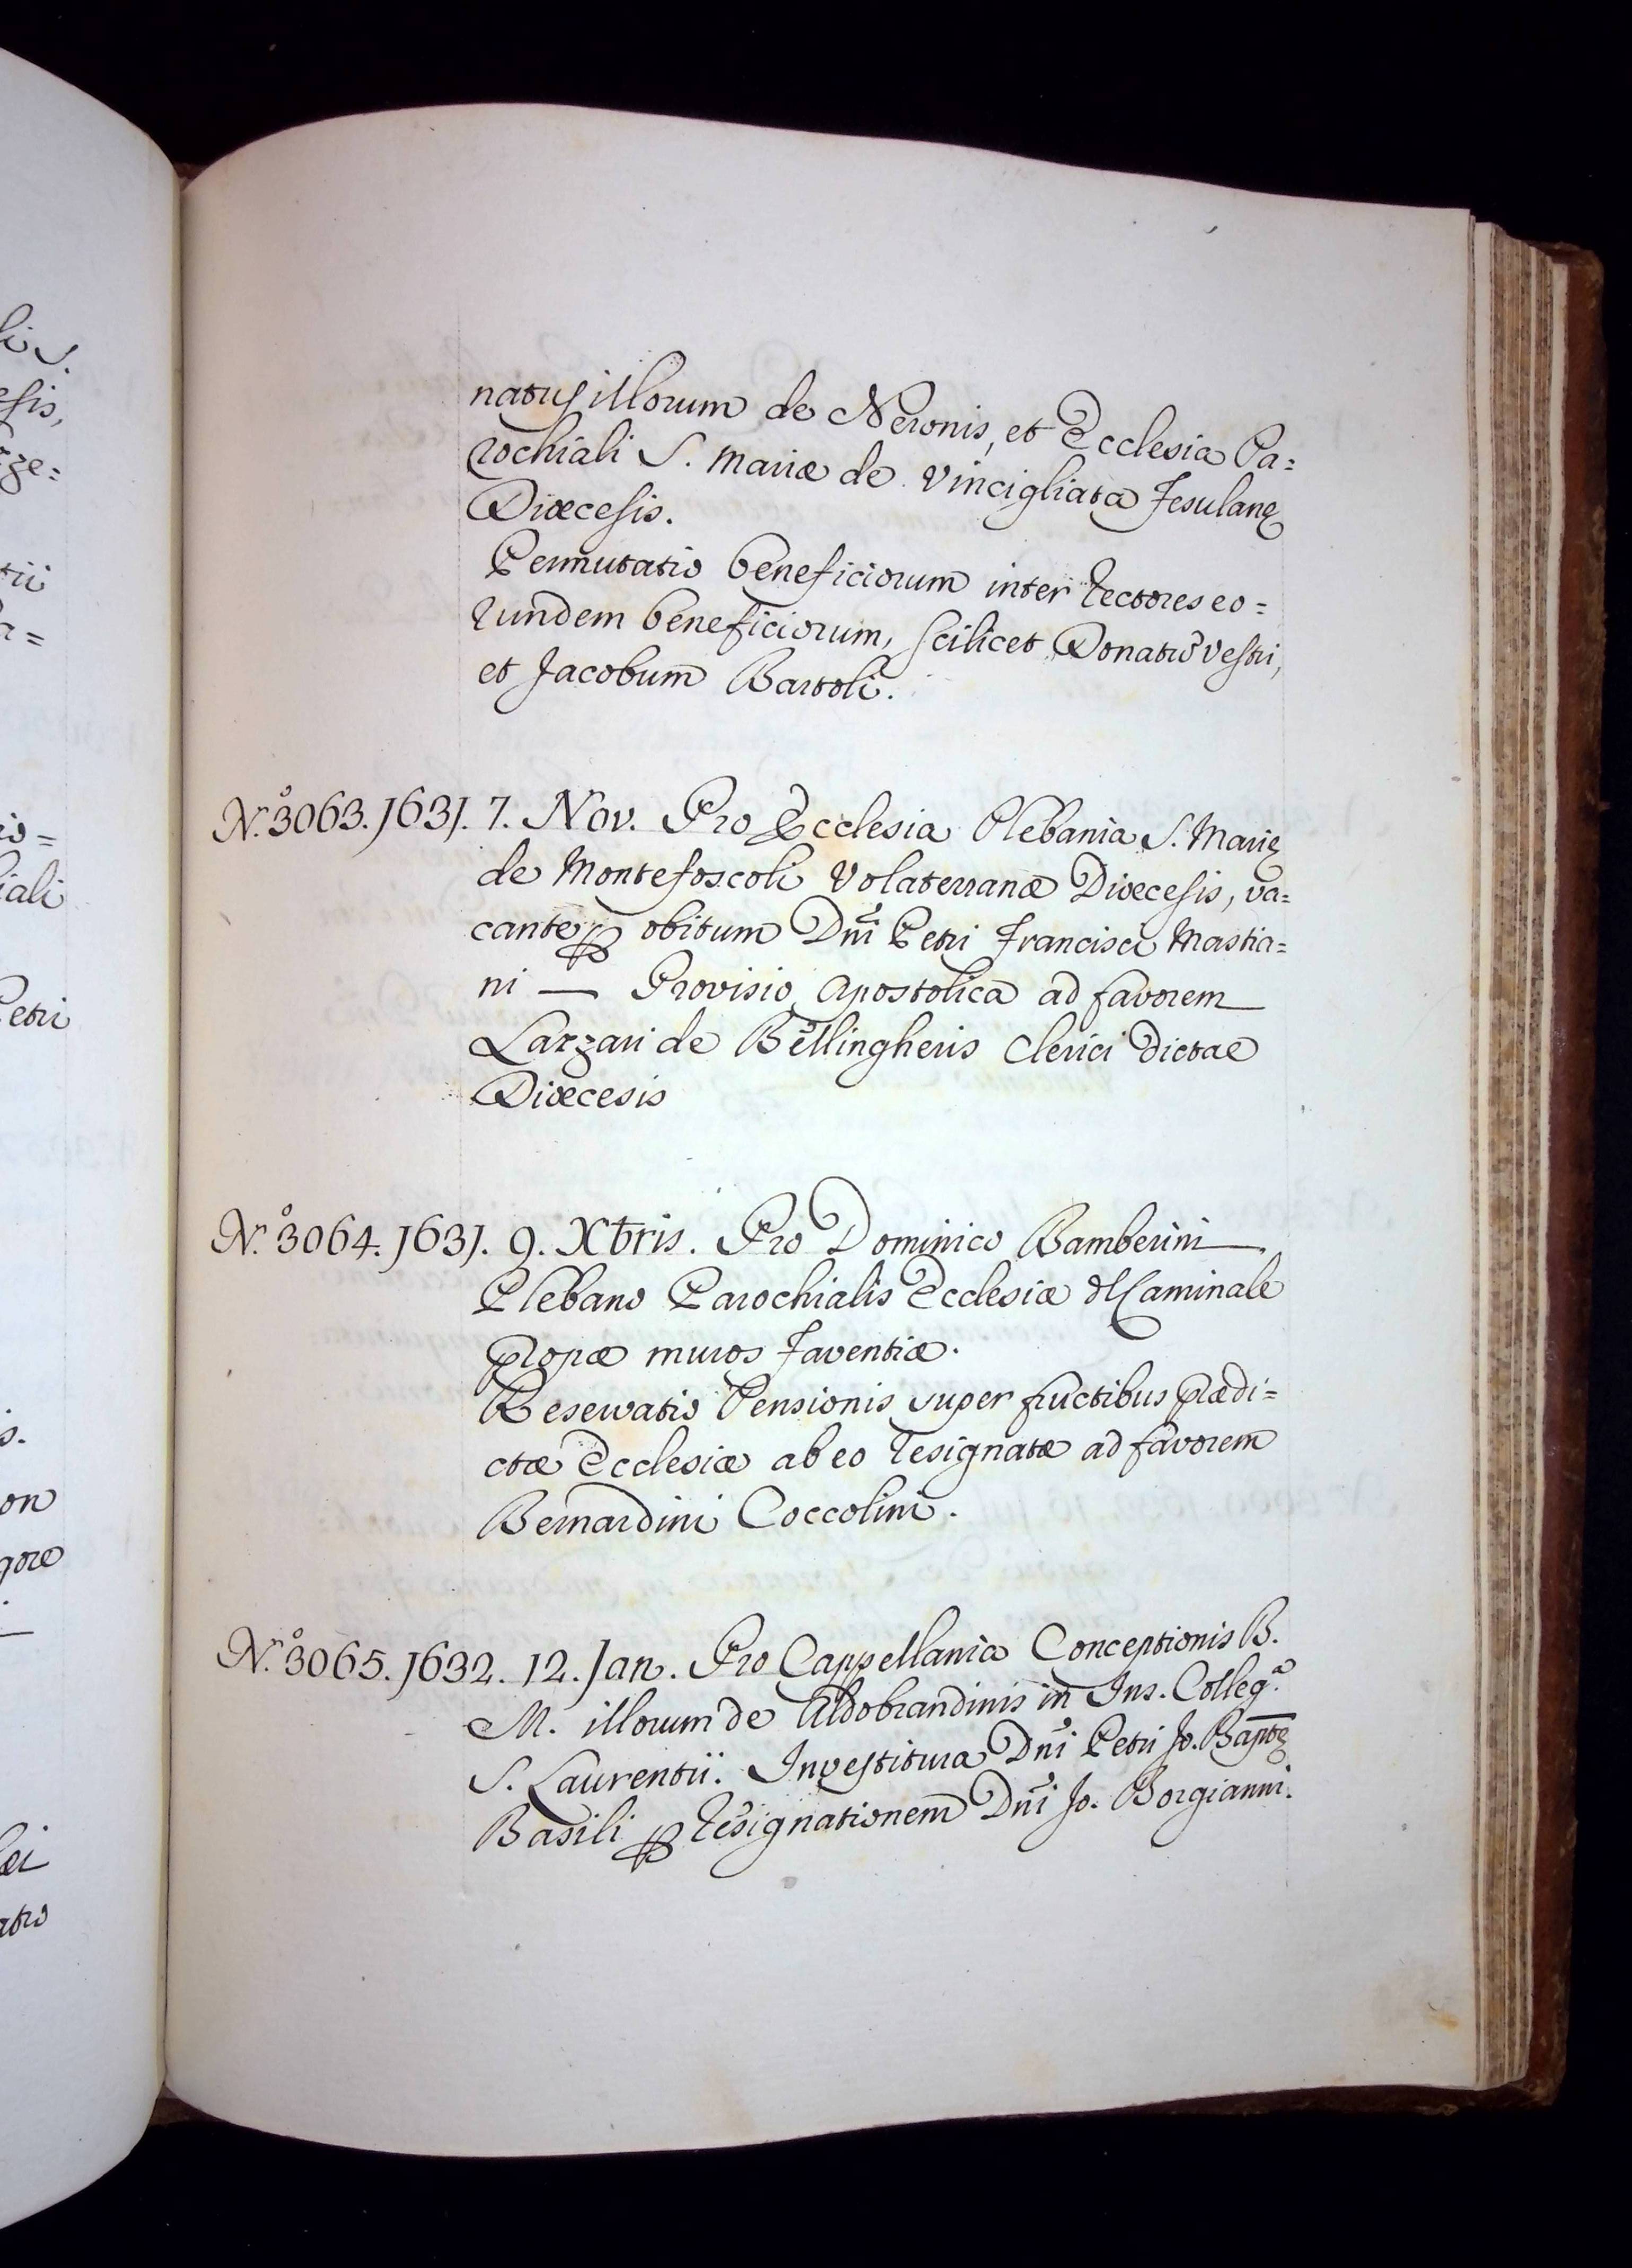 natus illorum de Neronis, et Ecclesia Pa=
rochiali S. Mariæ de Vincigliata Fesulanę
Diœcesis.
Permutatio beneficiorum inter Rectores eo=
rundem beneficiorum, scilicet Donatũ Vestri,
et Jacobum Bartoli.
N.º 3063. 1631. 7. Nov. Pro Ecclesia Plebania S. Marię
de Montefoscoli Volaterranæ Diœcesis, va=
cante ꝑ obitum Dñi Petri Francisci Mastia=
ni — Provisio Apostolica ad favorem
Lazzari de Bellingheris Clerici dictae
Diœcesis
N.º 3064. 1631. 9. Xbris. Pro Dominico Bamberini
Plebano Parochialis Ecclesiæ
propæ muros Faventiæ.
Reservatio Pensionis super fructibus prædi=
ctæ Ecclesiæ ab eo resignatæ ad favorem
Bernardini Coccolini.
N.º 3065. 1632. 12. Jan. Pro Cappellania Conceptionis B.
M. illorum de Aldobrandinis in Ins. Colleg.ª
S. Laurentii. Investitura Dñi Petri Jo. Baptę
Basili ꝑ resignationem Dñi Jo. Borgianni.